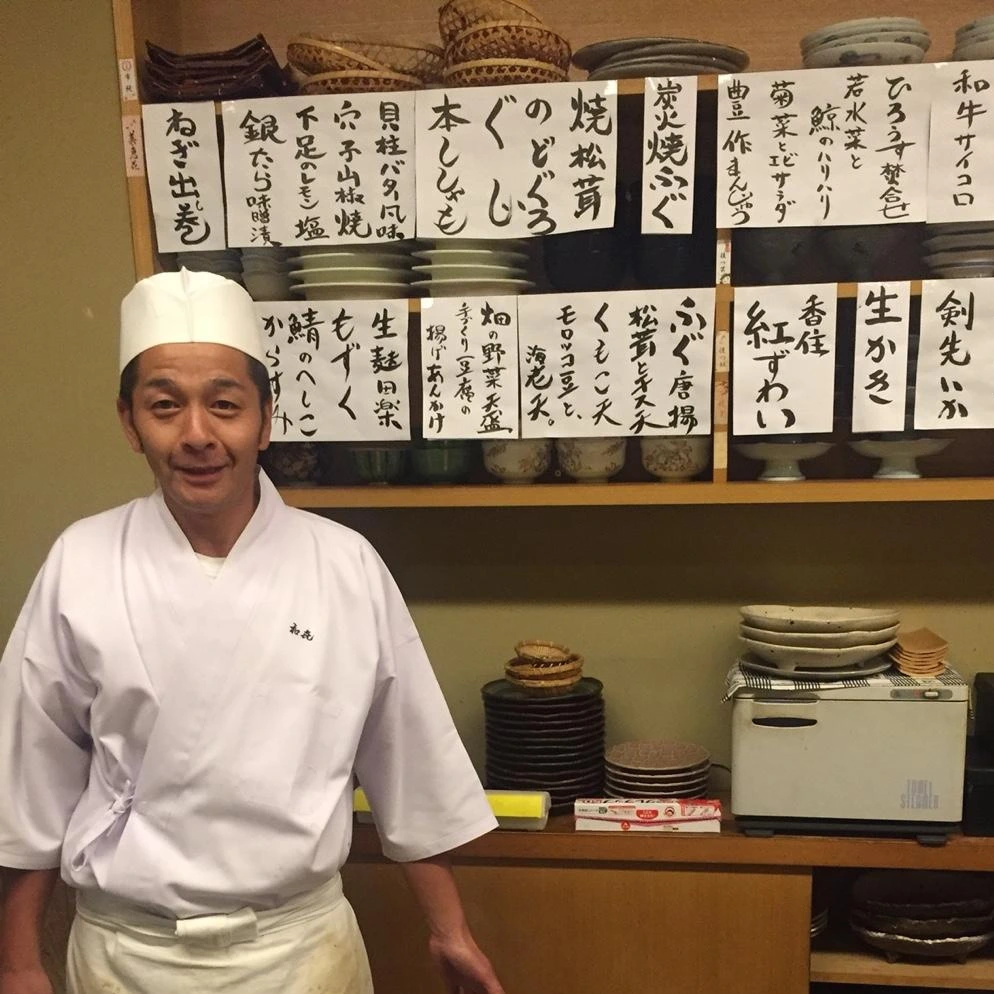 和牛サイコロ
ひろうす焚合せ
若水菜と
鯨のハリハリ
菊菜とエビサラダ
豊作まんじゅう
炭火焼ふぐ
焼松茸
のどぐろ
ぐじ
本ししゃも
貝柱バター風味
穴子山椒焼
下足のレモン塩
銀たら味噌漬
ねぎ出し巻
剣先いか
生かき
香住
紅ずわい
ふぐ唐揚
松茸とキス天
くもこ天
モロッコ豆と、
海老天。
畑の野菜天盛
手づくり豆腐の
揚げあんかけ
生麩田楽
もずく
鯖のへしこ
からすみ
TOWEL
STEAMER